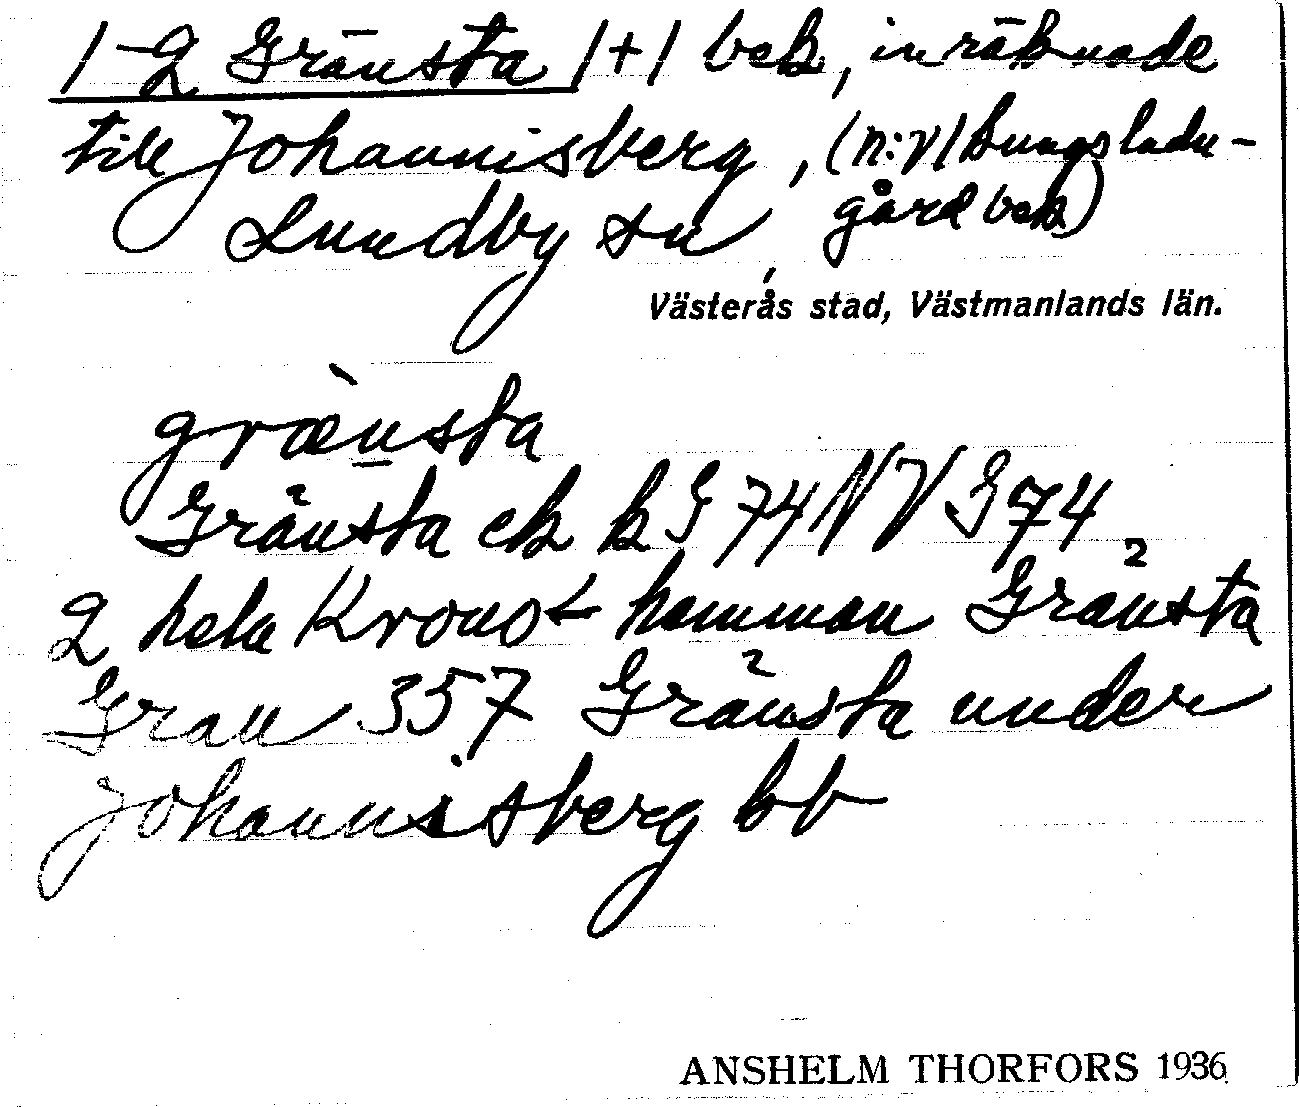 1-2 Gränsta 1+1 bsk, inräknade
till Johannisberg, (n:r 1 Kungsladu-
gård bsk)
Lundby sn,
Västerås stad, Västmanlands län.
grænsta
Gränsta ek k G 74 NV G 74
2 hela Krono- hemman Gränsta
Grau 357 Gränsta under
Johannisberg bb
ANSHELM THORFORS 1936